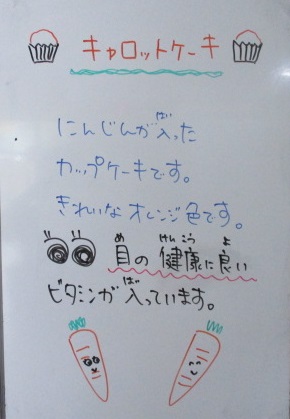 キャロットケーキ
にんじんが入った
カップケーキです。
きれいなオレンジ色です。
目の健康に良い
ビタミンが入っています。